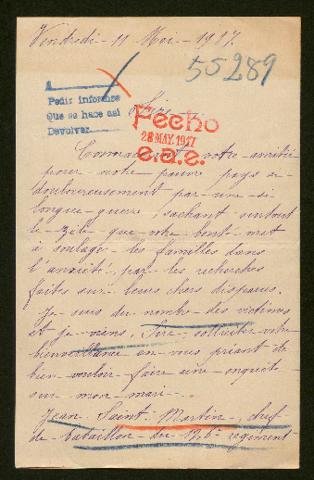 Vendredi - 11 Mai - 1917.
55289
A
Pedir informes
Que se hace así
Devolver
Sire
Fecho
28 MAY. 1917
e.a.e.
Connaissant votre amitié
pour notre pauvre pays si
douloureusement par une si
longue guerre, sachant surtout
le zèle que votre bonté met
à soulager les familles dans
l'anxiété, par les recherches
faites sur leurs chers disparus.
Je suis du nombre des victimes
et je viens, Sire, solliciter votre
bienveillance en vous priant de
bien vouloir faire une enquête
sur mon mari -
Jean Saint-Martin, chef
de bataillon du 176e régiment